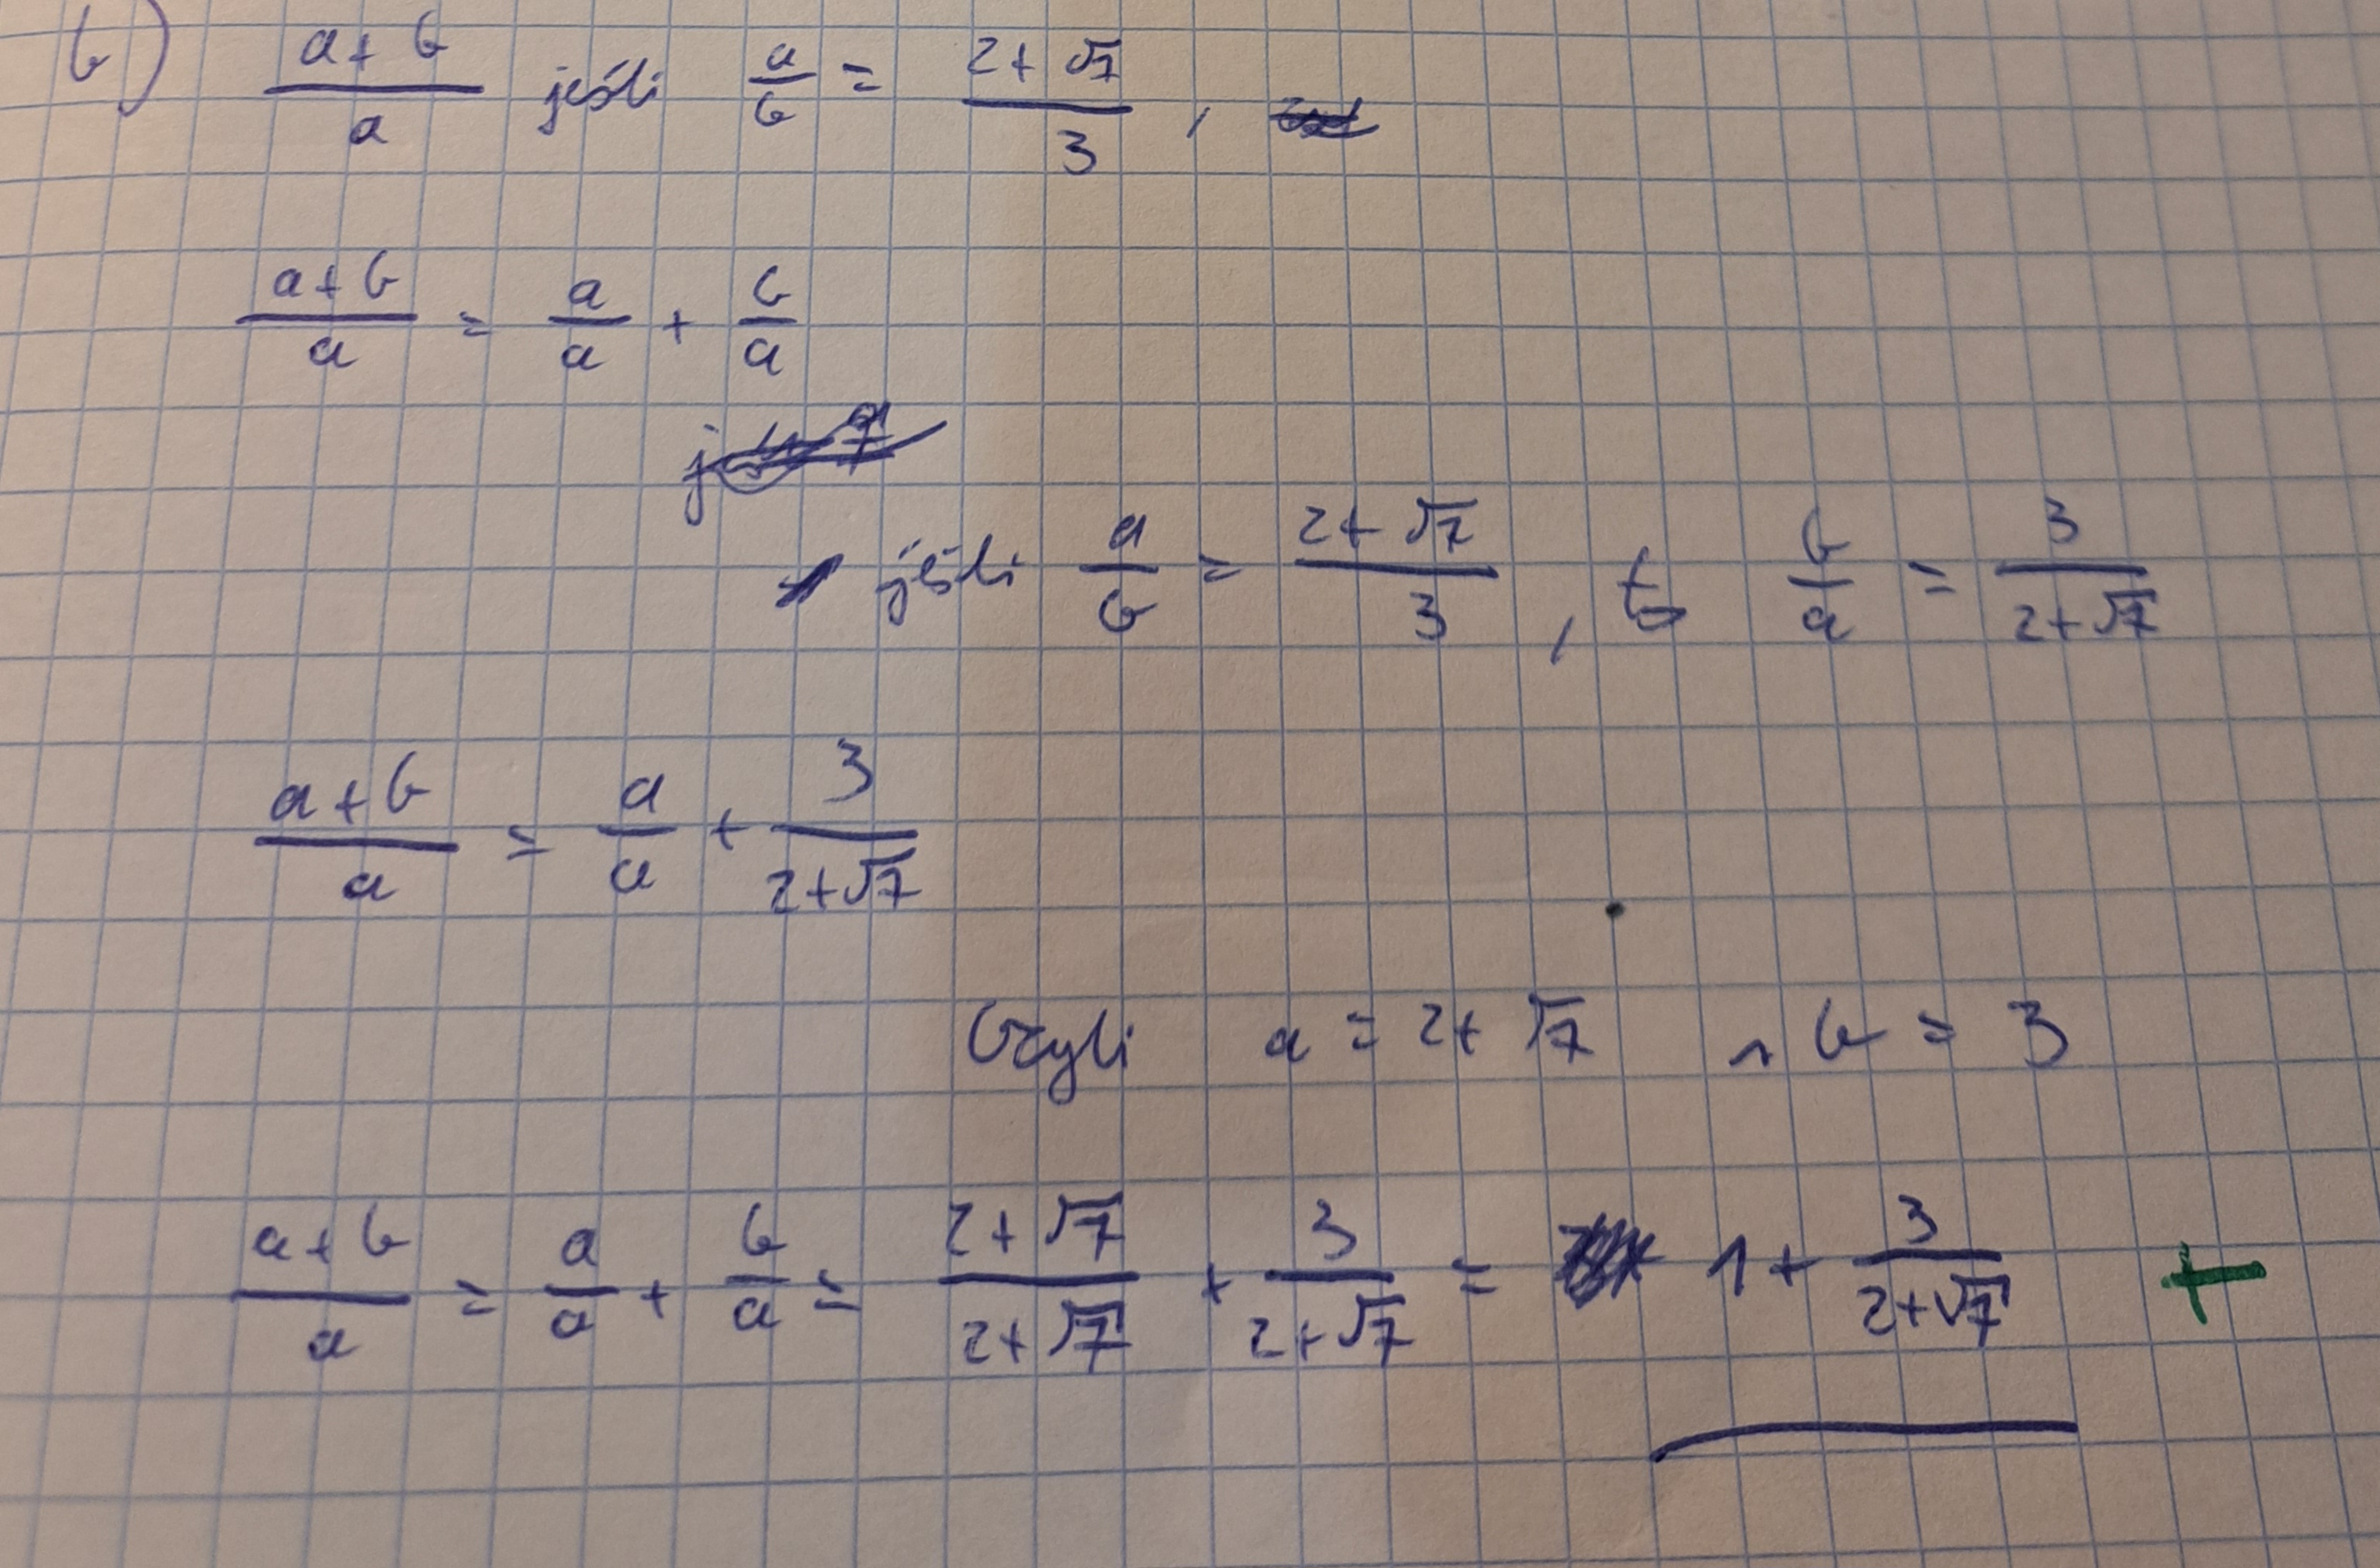 b) (a+b)/a jeśli a/b = (2+√7)/3 ,
(a+b)/a = a/a + b/a
jeśli a/b = (2+√7)/3 , to b/a = 3/(2+√7)
(a+b)/a = a/a + 3/(2+√7)
Czyli a = 2+√7 , b = 3
(a+b)/a = a/a + b/a = (2+√7)/(2+√7) + 3/(2+√7) = 1 + 3/(2+√7) +